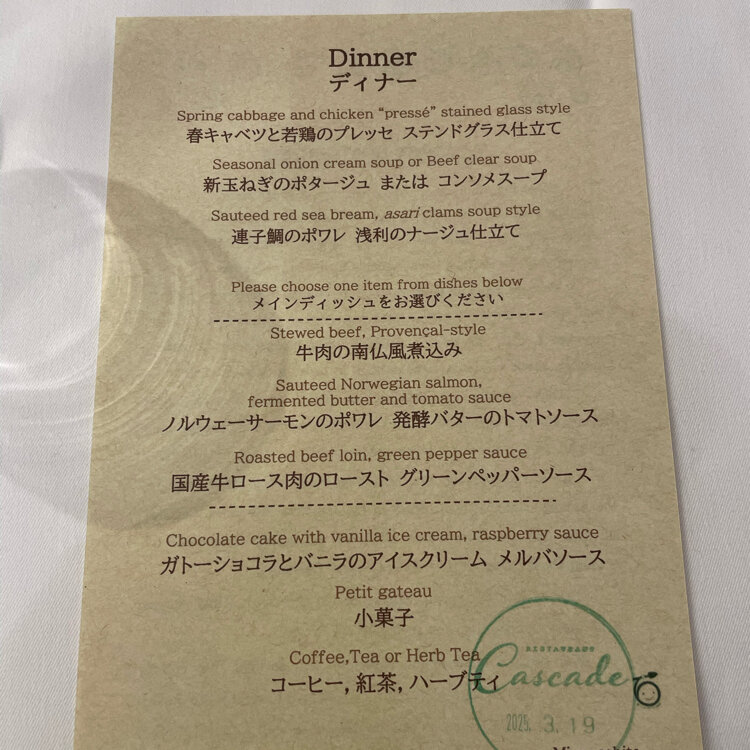 Dinner
ディナー
Spring cabbage and chicken “pressé” stained glass style
春キャベツと若鶏のプレッセ ステンドグラス仕立て
Seasonal onion cream soup or Beef clear soup
新玉ねぎのポタージュ または コンソメスープ
Sauteed red sea bream, asari clams soup style
連子鯛のポワレ 浅利のナージュ仕立て
Please choose one item from dishes below
メインディッシュをお選びください
Stewed beef, Provençal-style
牛肉の南仏風煮込み
Sauteed Norwegian salmon,
fermented butter and tomato sauce
ノルウェーサーモンのポワレ 発酵バターのトマトソース
Roasted beef loin, green pepper sauce
国産牛ロース肉のロースト グリーンペッパーソース
Chocolate cake with vanilla ice cream, raspberry sauce
ガトーショコラとバニラのアイスクリーム メルバソース
Petit gateau
小菓子
Coffee,Tea or Herb Tea
コーヒー, 紅茶, ハーブティ
RESTAURANT
Cascade
2025. 3. 19